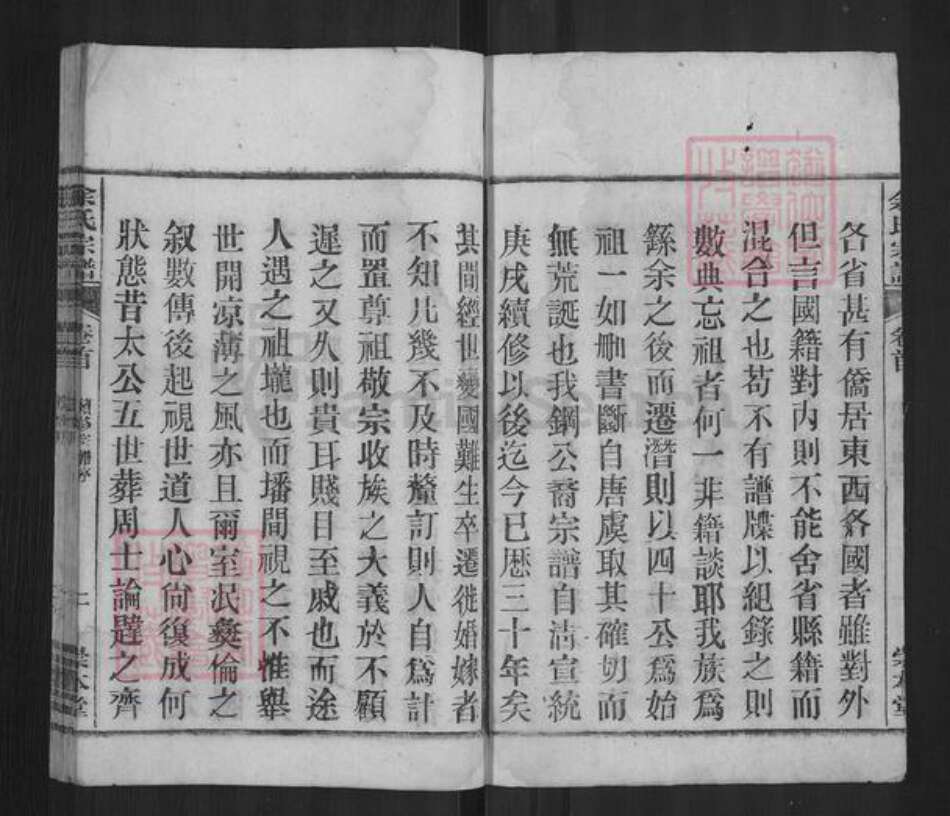 各省甚有僑居東西各國者雖對外
但言國籍對內則不能舍省縣籍而
混合之也苟不有譜牒以紀錄之則
數典忘祖者何一非籍談耶我族為
繇余之後而遷潛則以四十公為始
祖一如刪書斷自唐虞取其確切而
無荒誕也我鋼公裔宗譜自清宣統
庚戌續修以後迄今已歷三十年矣
其間經世變國難生卒遷徙婚嫁者
不知凡幾不及時釐訂則人自為計
而置尊祖敬宗收族之大義於不顧
遲之又久則貴耳賤目至戚也而途
人遇之祖壠也而墦間視之不惟舉
世開涼薄之風亦且爾室泯彝倫之
叙數傳後起視世道人心尙復成何
狀態昔太公五世葬周士論韙之齊
余氏宗譜
卷首
二